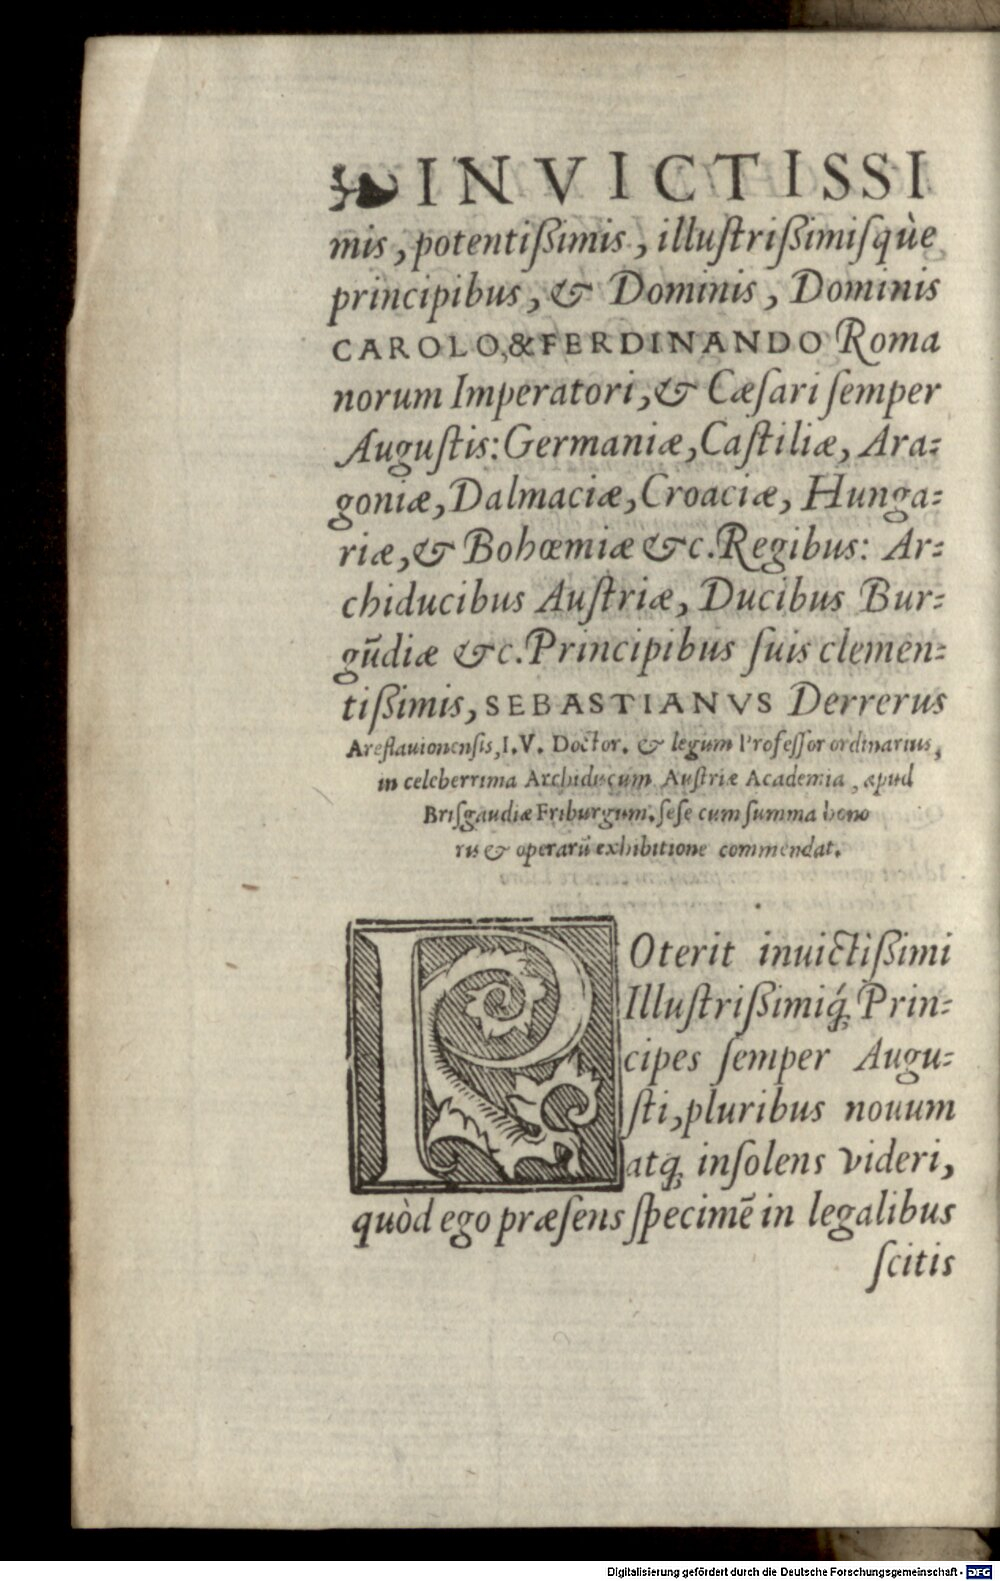 ❧ INVICTISSI
mis, potentißimis, illuſtrißimiſquè
principibus, & Dominis, Dominis
CAROLO, & FERDINANDO Roma
norum Imperatori, & Cæſari ſemper
Auguſtis: Germaniæ, Caſtiliæ, Ara⸗
goniæ, Dalmaciæ, Croaciæ, Hunga⸗
riæ, & Bohœmiæ &c. Regibus: Ar⸗
chiducibus Auſtriæ, Ducibus Bur⸗
gūdiæ &c. Principibus ſuis clemen⸗
tißimis, SEBASTIANVS Derrerus
Areflauionenſis, I. V. Doctor. & legum Profeſſor ordinarius,
in celeberrima Archiducum Auſtriæ Academia, apud
Briſgaudiæ Friburgum. ſeſe cum ſumma hono
ris & operarū exhibitione commendat.
POterit inuictißimi
Illuſtrißimiq́ꝫ Prin⸗
cipes ſemper Augu⸗
ſti, pluribus nouum
atqꝫ inſolens videri,
quòd ego præſens ſpecimē in legalibus
ſcitis
Digitalisierung gefördert durch die Deutsche Forschungsgemeinschaft - DFG